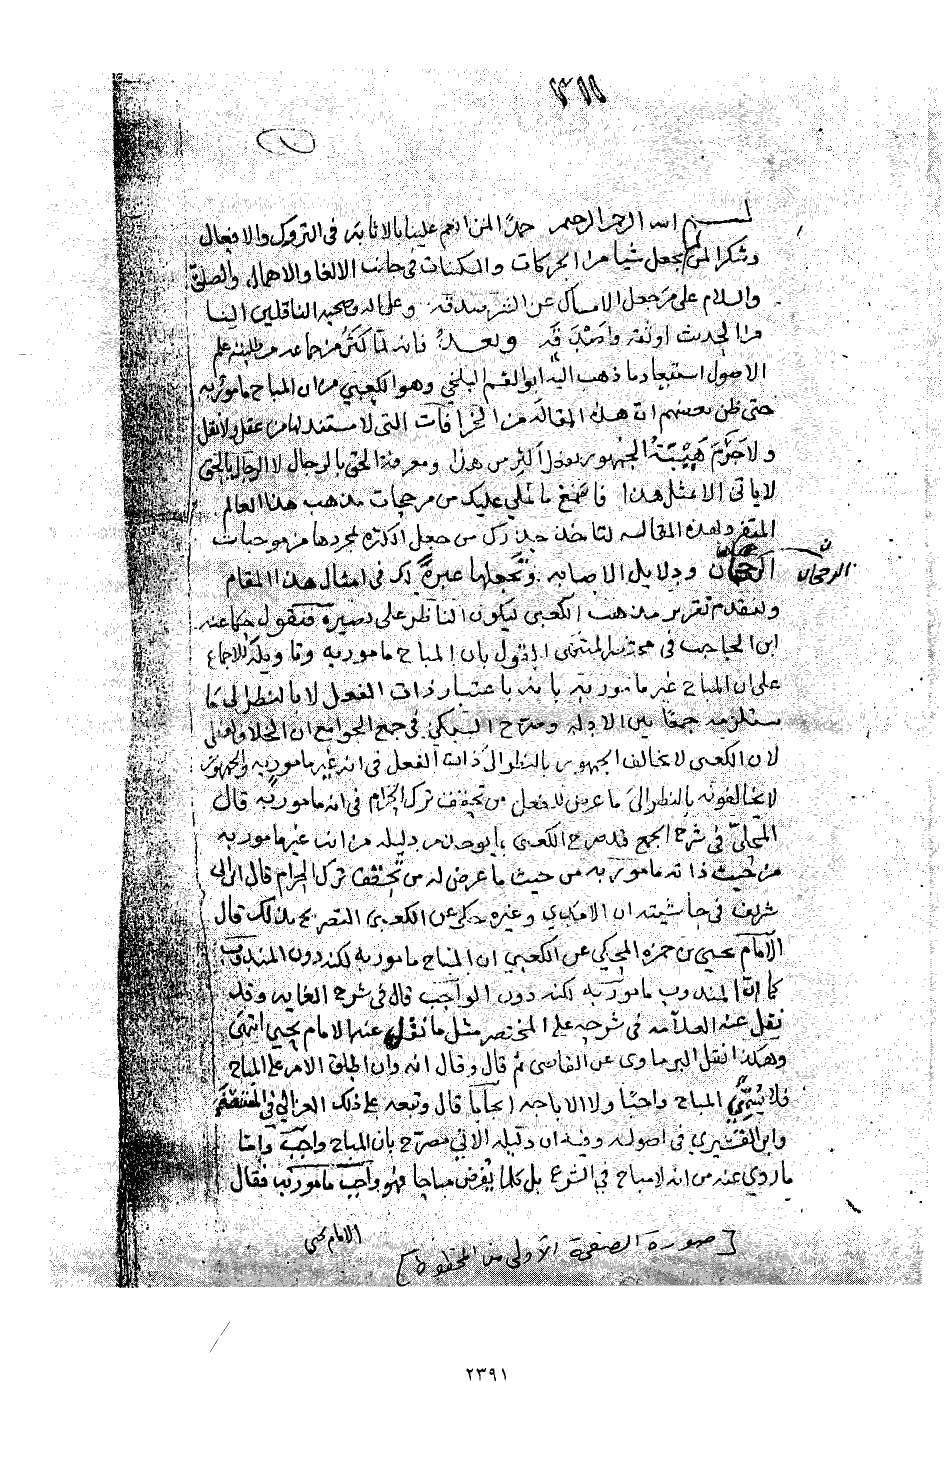 ١
بسم الله الرحمن الرحيم حمدًا لمن انعم علينا بالاثابة في التروك والافعال
وشكرا لمن لم يجعل شيأ من الحركات والسكنات في جانب الالغا والاهمال والصلوة
والسلام على من جعل الامساك عن الشر صدقه وعلى اله وصحبه الناقلين الينا
من الحديث اوثقه واصدقه وبعد فانه لما كثر من جماعه من طلبة علم
الاصول استبعاد ما ذهب اليه ابو القسم البلخي وهو الكعبي من ان المباح مامور به
حتى ظن بعضهم ان هذه المقالة من الخرافات التي لا مستند لها من عقل ولا نقل
ولا جرم هيبة الجمهور أكثر من هذا ومعرفة الحق بالرجال لا الرجال بالحق
لا ياتي الا بمثل هذا فاسمع ما نملي عليك من مرجحات مذهب هذا العالم
المتفرد لهذه المقاله لتاخذ حذرك من جعل الكثرة لمجردها من موجبات
الرجحان ودلايل الاصابه وتجعلها عبرة لك في امثال هذا المقام
الرجحان
ن
ولنقدم تقرير مذهب الكعبي ليكون الناظر على بصيرة فنقول حكا عنه
ابن الحاجب في مختصر المنتهى القول بان المباح مامور به وتاويله للاجماع
على ان المباح غير مامور به بانه باعتبار ذات الفعل لا بالنظر الى ما
يستلزمه جمعا بين الادلة وصرح السبكي في جمع الجوامع ان الخلاف لفظي
لان الكعبي لا يخالف الجمهور بالنظر الى ذات الفعل في انه غير مامور به والجمهور
لا يخالفونه بالنظر الى ما عرض للفعل من تحقق ترك الحرام في انه مامور به قال
المحلي في شرح الجمع قد صرح الكعبي بما يوخذ من دليله من انه غير مامور به
من حيث ذاته مامور به من حيث ما عرض له من تحقق ترك الحرام قال ابن ابي
شريف في حاشيته ان الامدي وغيره حكى عن الكعبي التصريح بذلك قال
الامام يحيى بن حمزه المحكي عن الكعبي ان المباح مامور به لكنه دون المندوب
كما ان المندوب مامور به لكنه دون الواجب قال في شرح الغايه وقد
نقل عنه العلامه في شرحه على المختصر مثل ما نقل عنه الامام يحيى انتهى
وهكذا نقل البرماوي عن القاضي ثم قال وقال انه وان اطلق الامر على المباح
فلا يسمي المباح واجبًا ولا الاباحه ايجابا قال وتبعه على ذلك الغزالي في
وابن القشيري في اصوله وفيه ان دليله الاتي مصرح بان المباح واجب وامّا
ما روي عنه من انه لا مباح في الشرع بل كلما يفرض مباحا فهو واجب مامور به فقال
الامام يحيى
[صورة الصفحة الأولى من المخطوط]
٢٣٩١